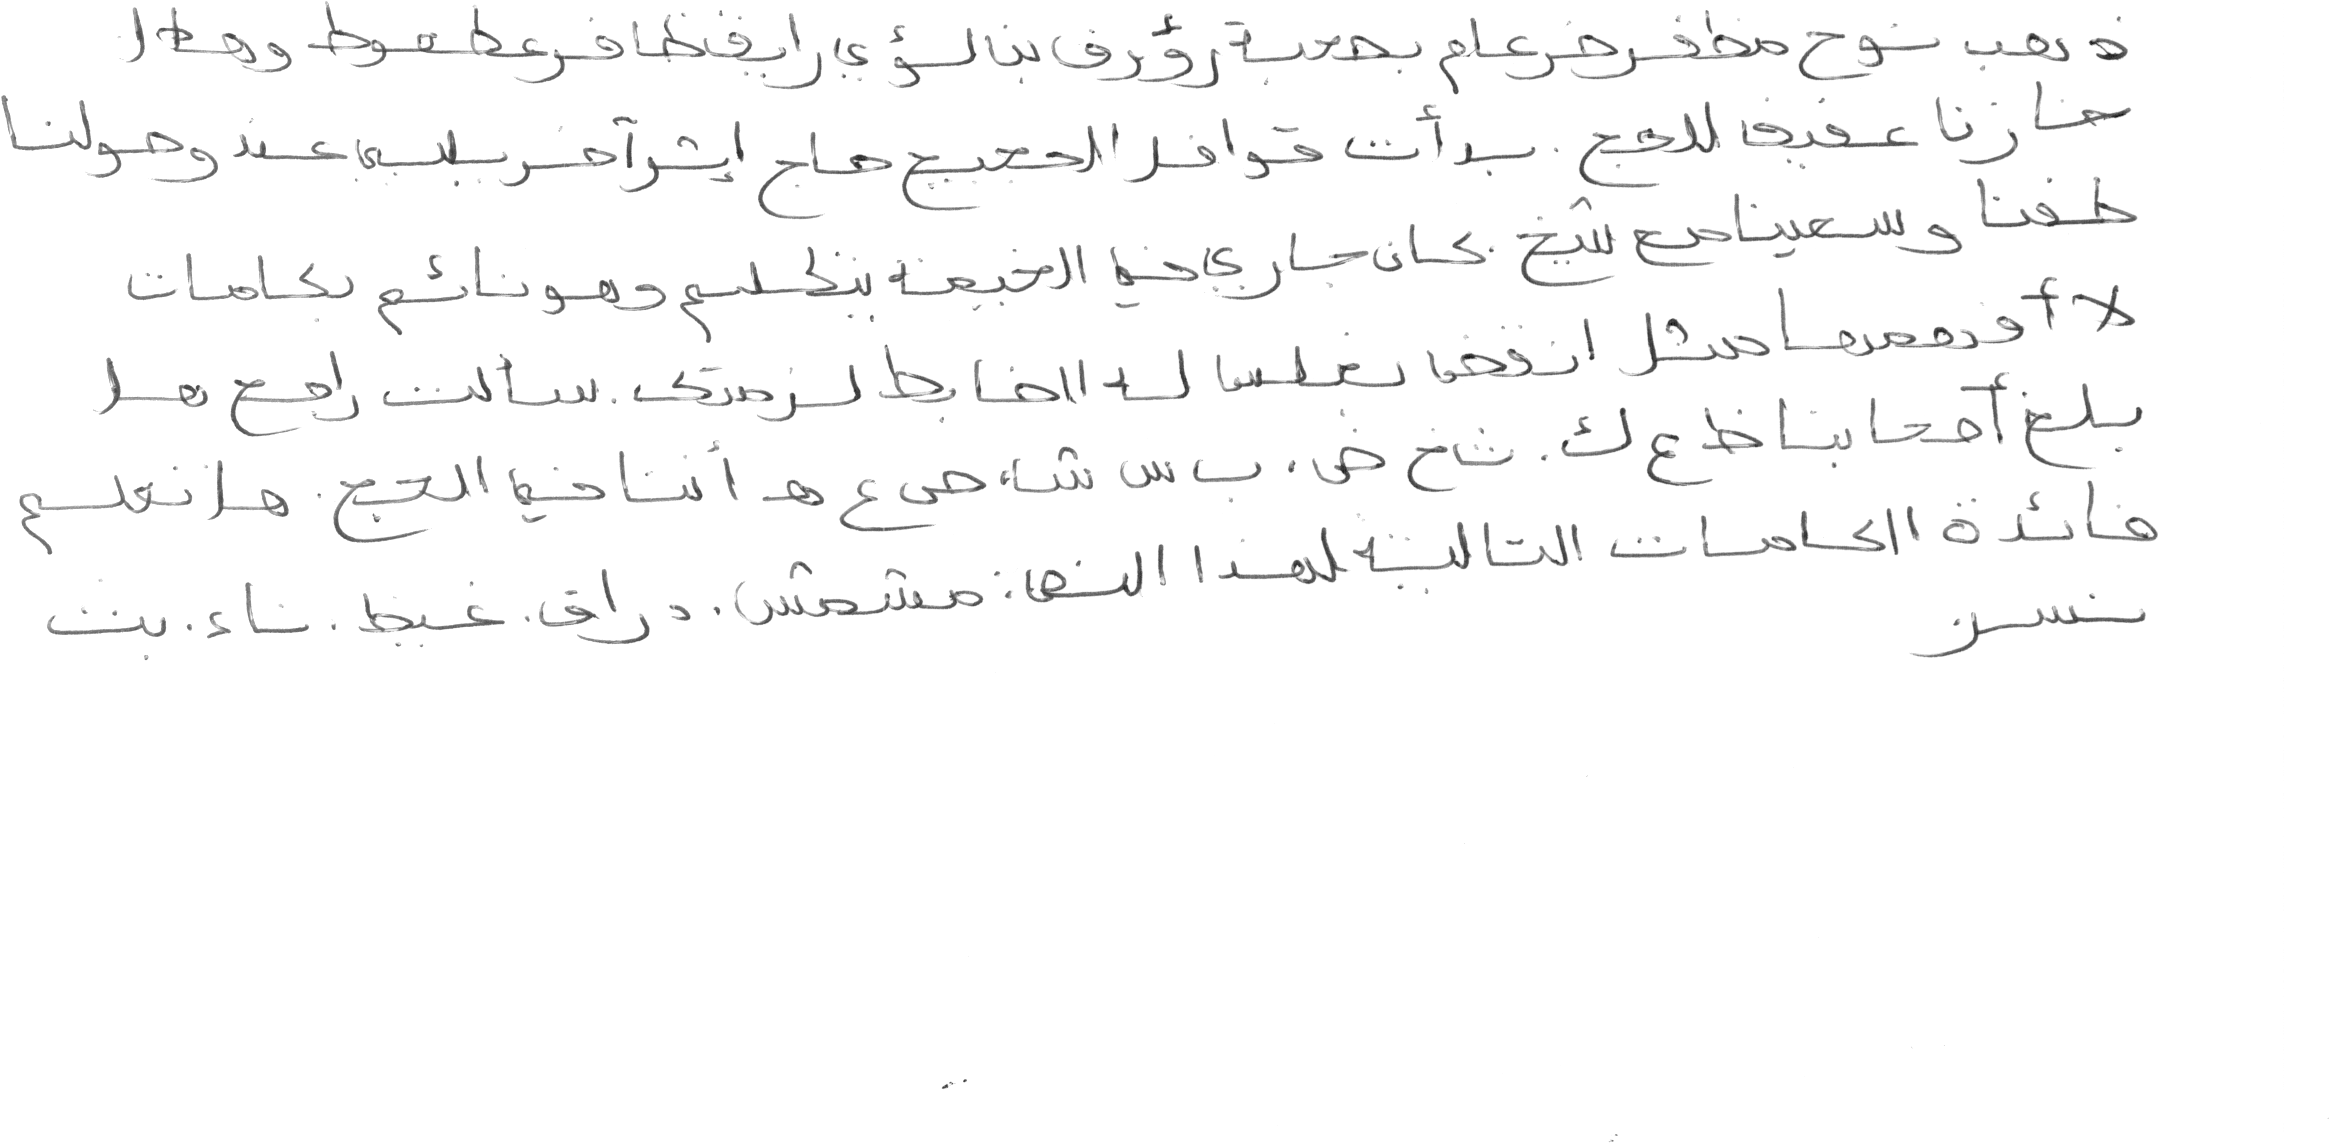 ذهب نوح مظفر ضرغام بصحبة رؤوف بن لؤي رايق ظافر عطعوط وهلال
حازنا عفيف للحج . بدأت قوافل الحجيج حاج إثر آخر يلبي عند وصولنا
طفنا وسعينا مع شيخ . كان جاري في الخيمة يتكلم وهو نائم بكلمات
لا أفهمها مثل انقض بغلس له الضابط لزمتك . سألت رامح هل
بلغ أصحابنا ظ ع ك . ث خ ض . ب س ش ، ص ع هـ أننا في الحج . هل تعلم
فائدة الكلمات التالية لهذا النص : مشمش . دراق . غيظ . ناء . بث
نسر